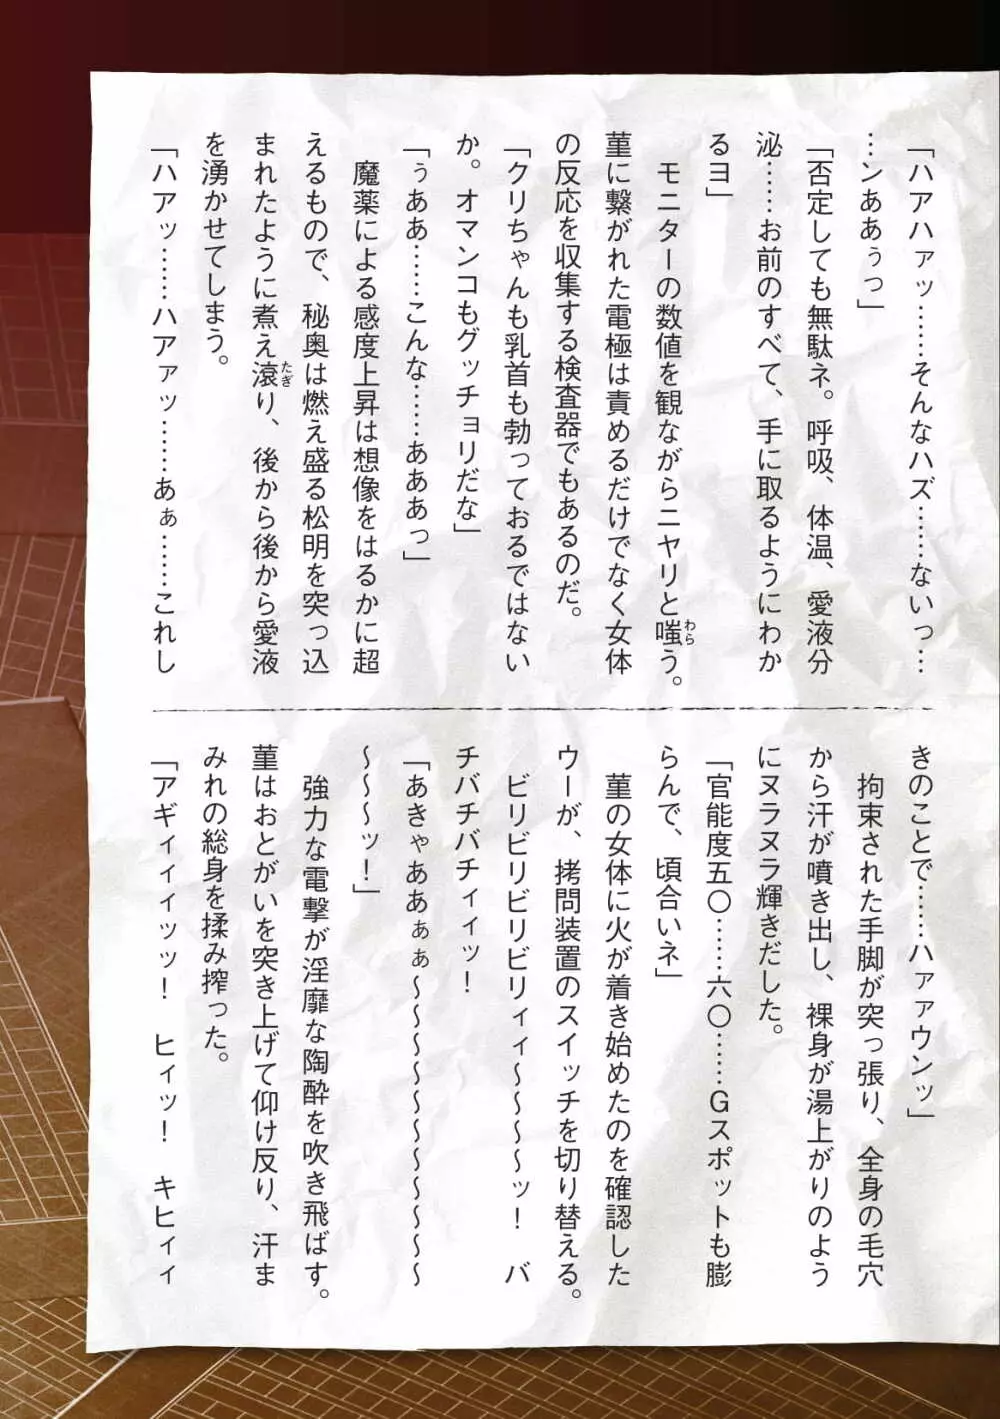 「ハアハァッ……そんなハズ……ないっ…
…ンああぅっ」
「否定しても無駄ネ。呼吸、体温、愛液分
泌……お前のすべて、手に取るようにわか
るヨ」
　モニターの数値を観ながらニヤリと嗤う。
わら
菫に繋がれた電極は責めるだけでなく女体
の反応を収集する検査器でもあるのだ。
「クリちゃんも乳首も勃っておるではない
か。オマンコもグッチョリだな」
「ぅああ……こんな……あああっ」
　魔薬による感度上昇は想像をはるかに超
えるもので、秘奥は燃え盛る松明を突っ込
まれたように煮え滾り、後から後から愛液
たぎ
を湧かせてしまう。
「ハアッ……ハアァッ……あぁ……これし
きのことで……ハァァウンッ」
　拘束された手脚が突っ張り、全身の毛穴
から汗が噴き出し、裸身が湯上がりのよう
にヌラヌラ輝きだした。
「官能度五〇……六〇……Ｇスポットも膨
らんで、頃合いネ」
　菫の女体に火が着き始めたのを確認した
ウーが、拷問装置のスイッチを切り替える。
　ビリビリビリビリィィ～～～～ッ！　バ
チバチバチィィッ！
「あきゃああぁぁ～～～～～～～～～～～
～～～～ッ！」
　強力な電撃が淫靡な陶酔を吹き飛ばす。
菫はおとがいを突き上げて仰け反り、汗ま
みれの総身を揉み搾った。
「アギィィィィッッ！　ヒィッ！　キヒィィ